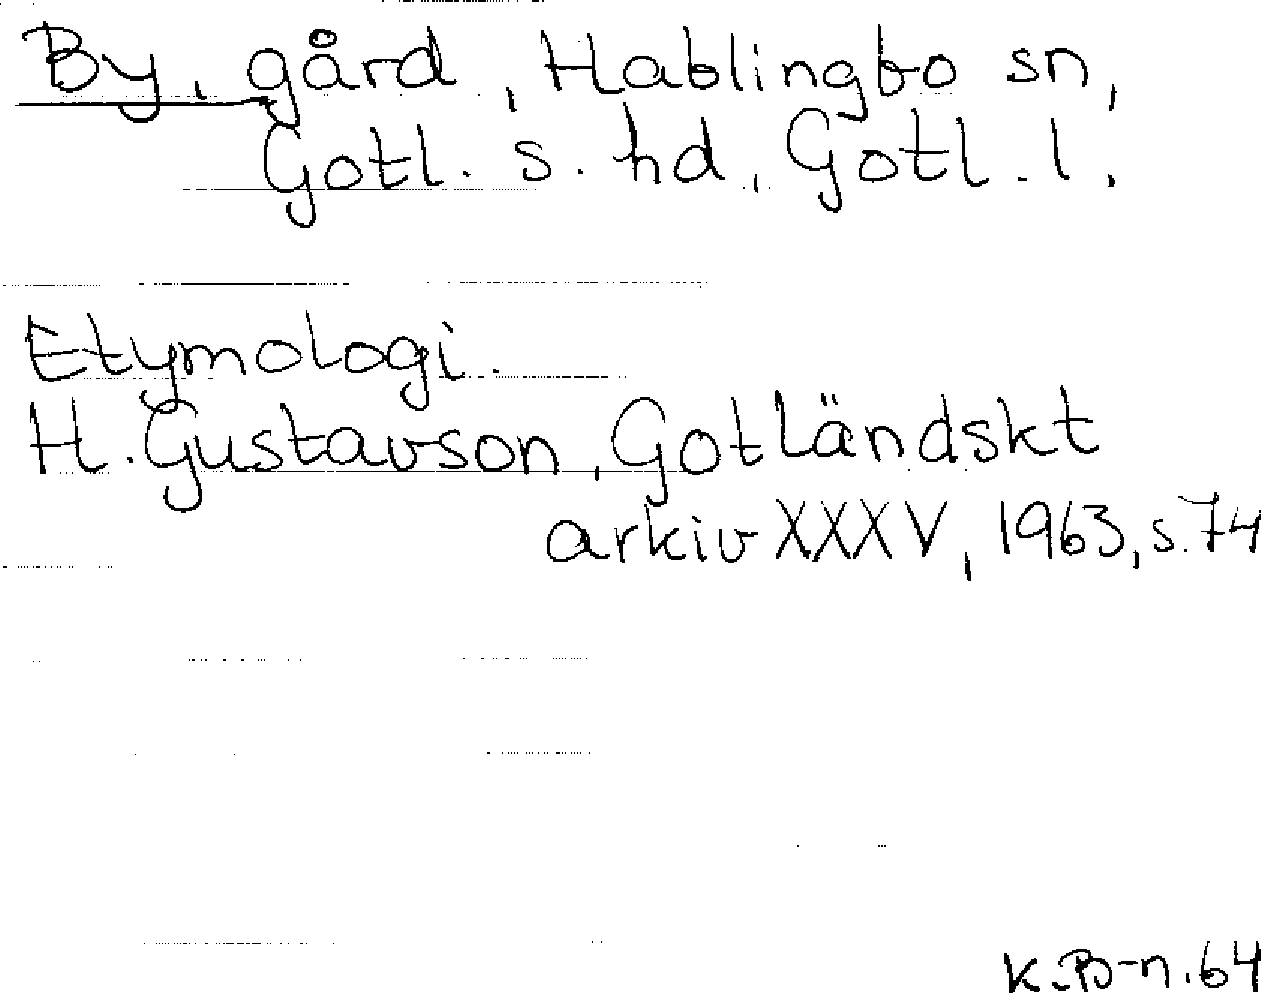 By, gård, Hablingbo sn,
Gotl. s. hd, Gotl. l.
Etymologi.
H. Gustavson, Gotländskt
arkiv XXXV, 1963, s. 74
K.B-n. 64